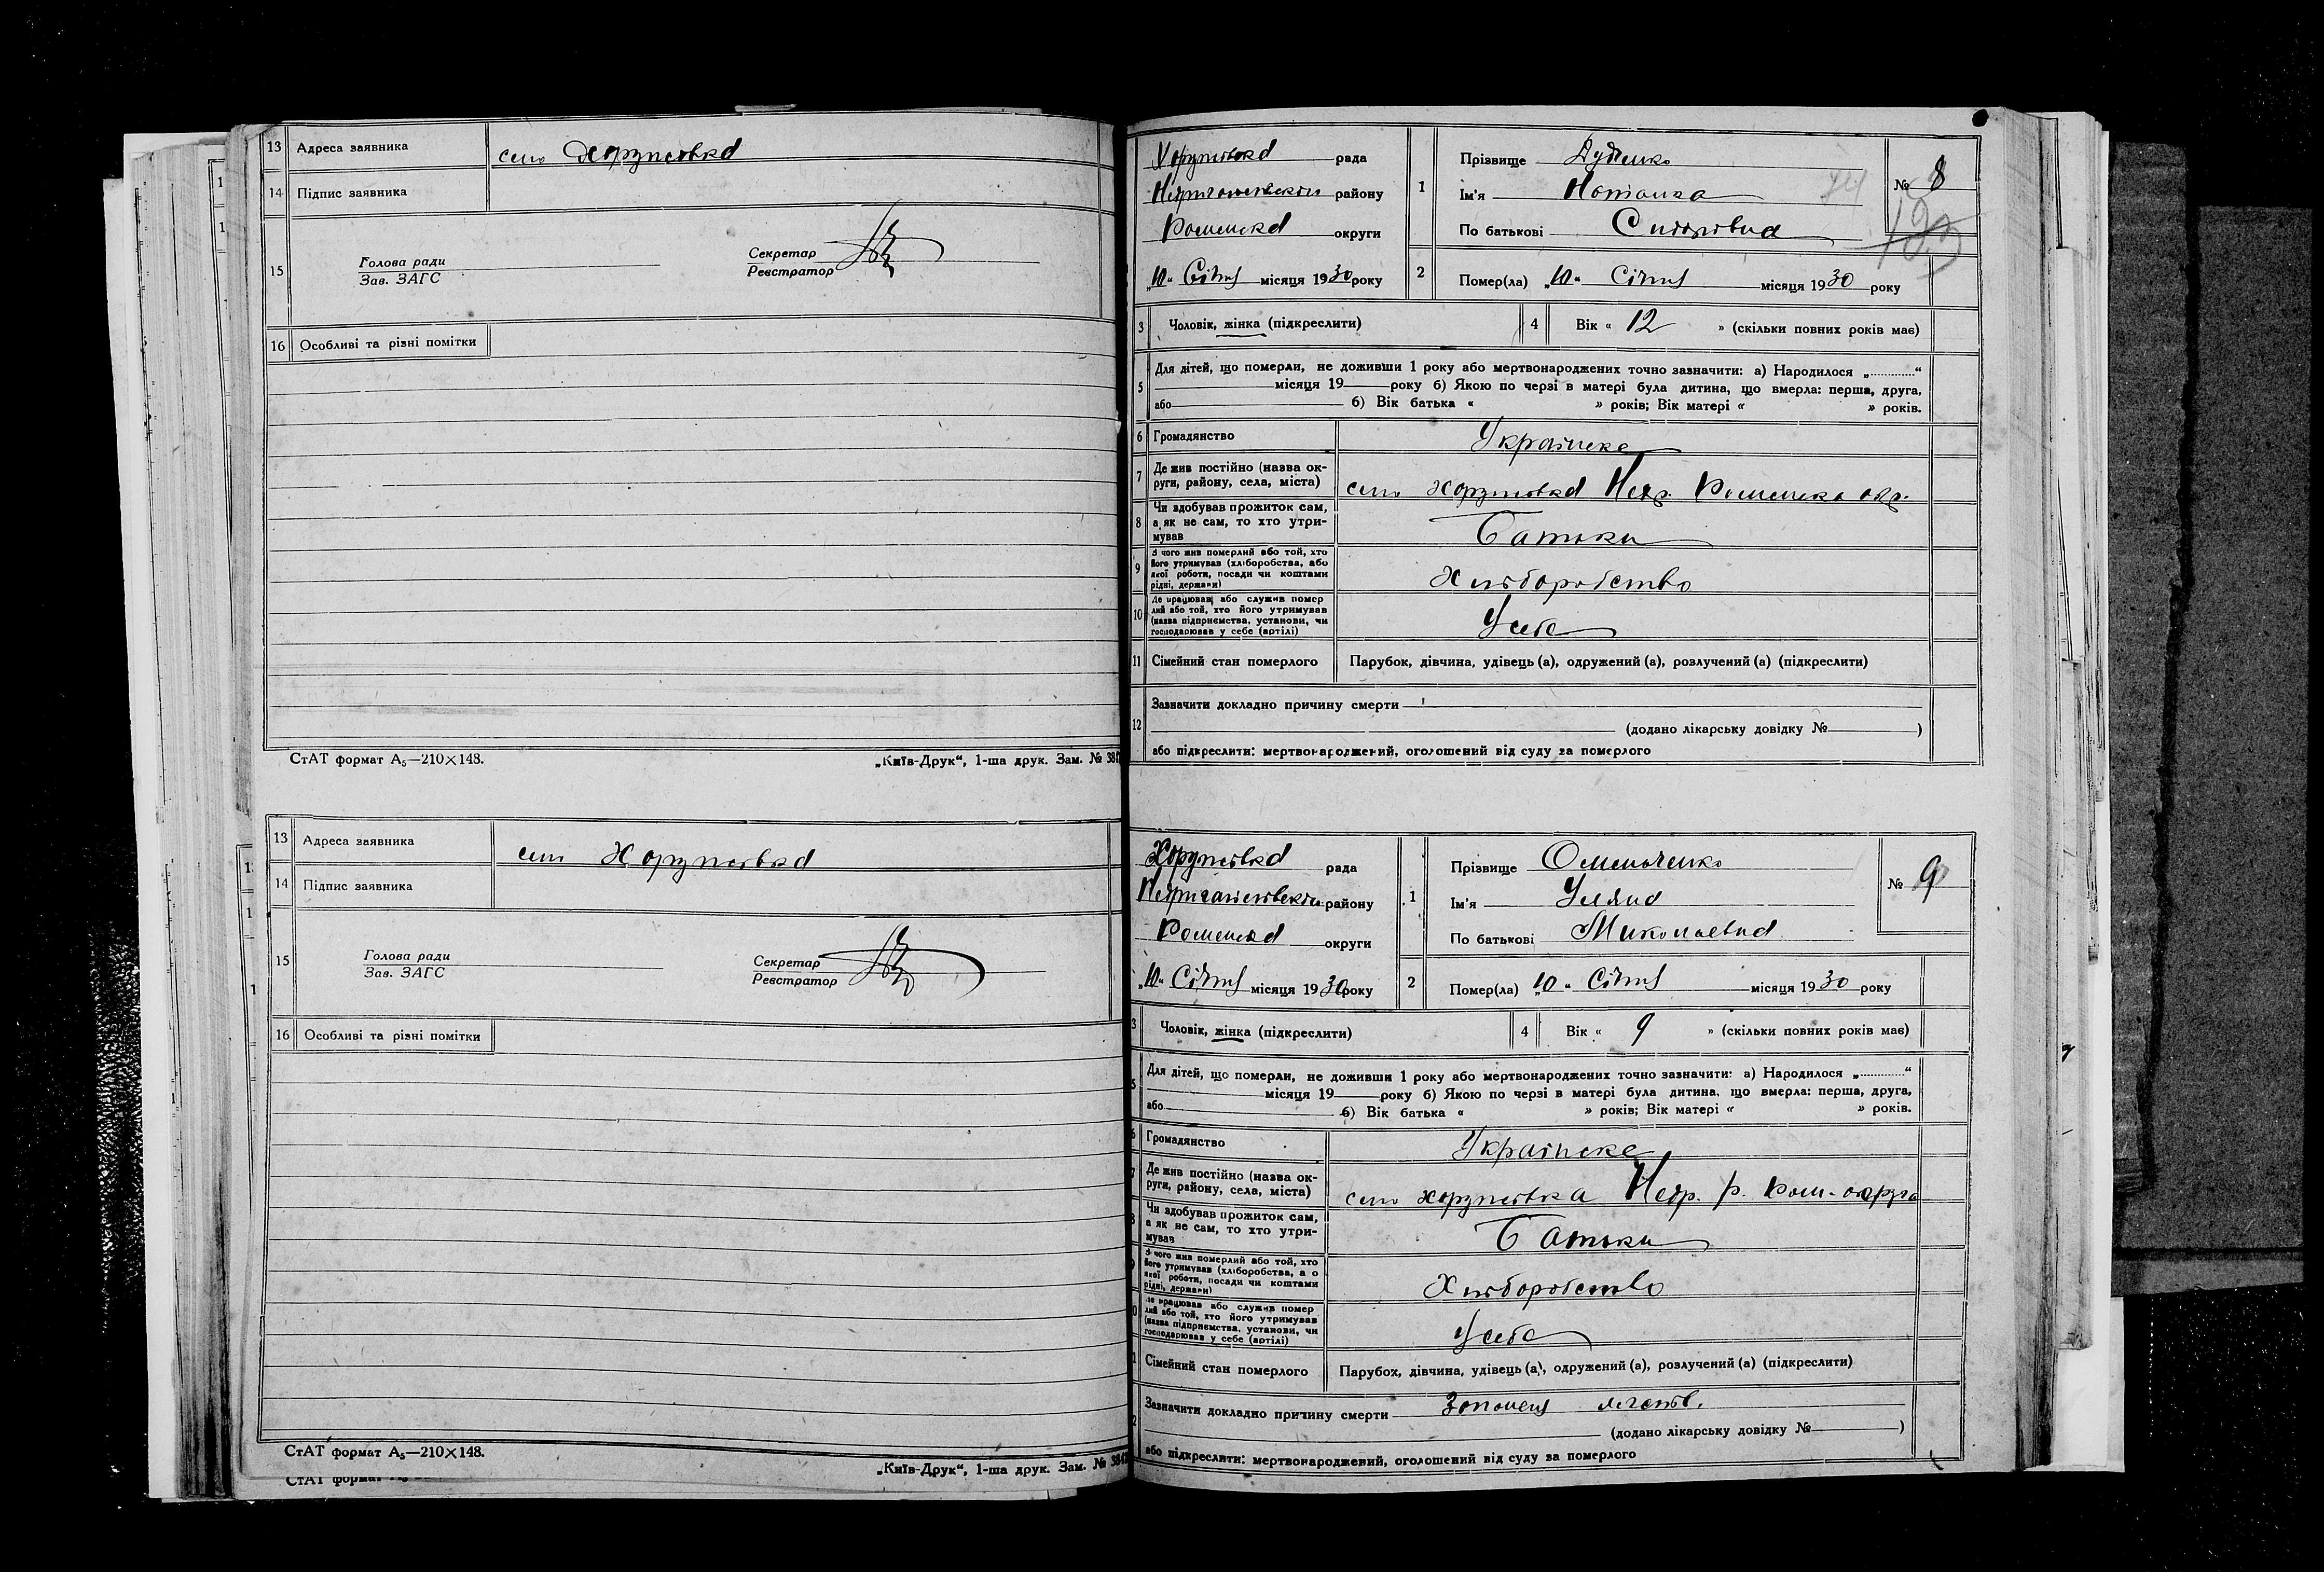 13 Адреса заявника село Хоружовка
14 Підпис заявника
15 Голова ради
Зав. ЗАГС
Секретар
Реєстратор
16 Особливі та різні помітки
СтАТ формат А₅—210×148.
„Київ-Друк“, 1-ша друк. Зам. № 384
13 Адреса заявника село Хоружовка
14 Підпис заявника
15 Голова ради
Зав. ЗАГС
Секретар
Реєстратор
16 Особливі та різні помітки
СтАТ формат А₅—210×148.
„Київ-Друк“, 1-ша друк. Зам. № 384
СтАТ формат
Хоружовка рада
району
Роменска округи
„10“ Січня місяця 1930 року
1 Прізвище
Ім'я
По батькові Сидоровна
№ 8
2 Помер(ла) „10“ Січня місяця 1930 року
3 Чоловік, жінка (підкреслити) 4 Вік « 12 » (скільки повних років має)
5 Для дітей, що померли, не доживши 1 року або мертвонароджених точно зазначити: а) Народилося „............“
місяця 19 року б) Якою по черзі в матері була дитина, що вмерла: перша, друга,
або б) Вік батька « » років; Вік матері « » років.
6 Громадянство Українське
7 Де жив постійно (назва ок-
руги, району, села, міста) село Хоружовка Недр. Роменска окр.
8 Чи здобував прожиток сам,
а як не сам, то хто утри-
мував Батьки
9 З чого жив померлий або той, хто
його утримував (хліборобства, або
якої роботи, посади чи коштами
рідні, держави) Хліборобство
10 Де працював або служив помер
лий або той, хто його утримував
(назва підприємства, установи, чи
господарював у себе (артілі) У себе
11 Сімейний стан померлого Парубок, дівчина, удівець (а), одружений (а), розлучений (а) (підкреслити)
12 Зазначити докладно причину смерти
(додано лікарську довідку № )
або підкреслити: мертвонароджений, оголошений від суду за померлого
Хоружовка рада
району
Роменска округи
„10“ Січня місяця 1930 року
1 Прізвище Омельченко
Ім'я Уляна
По батькові Миколаевна
№ 9
2 Помер(ла) „10“ Січня місяця 1930 року
3 Чоловік, жінка (підкреслити) 4 Вік « 9 » (скільки повних років має)
5 Для дітей, що померли, не доживши 1 року або мертвонароджених точно зазначити: а) Народилося „............“
місяця 19 року б) Якою по черзі в матері була дитина, що вмерла: перша, друга,
або б) Вік батька « » років; Вік матері « » років.
6 Громадянство Українське
7 Де жив постійно (назва ок-
руги, району, села, міста) село Хоружовка Недр. р. Ром. округа
8 Чи здобував прожиток сам,
а як не сам, то хто утри-
мував Батьки
З чого жив померлий або той, хто
його утримував (хліборобства, а о
якої роботи, посади чи коштами
рідні, держави) Хліборобство
Де працював або служив помер
лий або той, хто його утримував
(назва підприємства, установи, чи
господарював у себе (артілі) У себе
Сімейний стан померлого Парубок, дівчина, удівець (а), одружений (а), розлучений (а) (підкреслити)
Зазначити докладно причину смерти Запонення легенів.
(додано лікарську довідку № )
або підкреслити: мертвонароджений, оголошений від суду за померлого